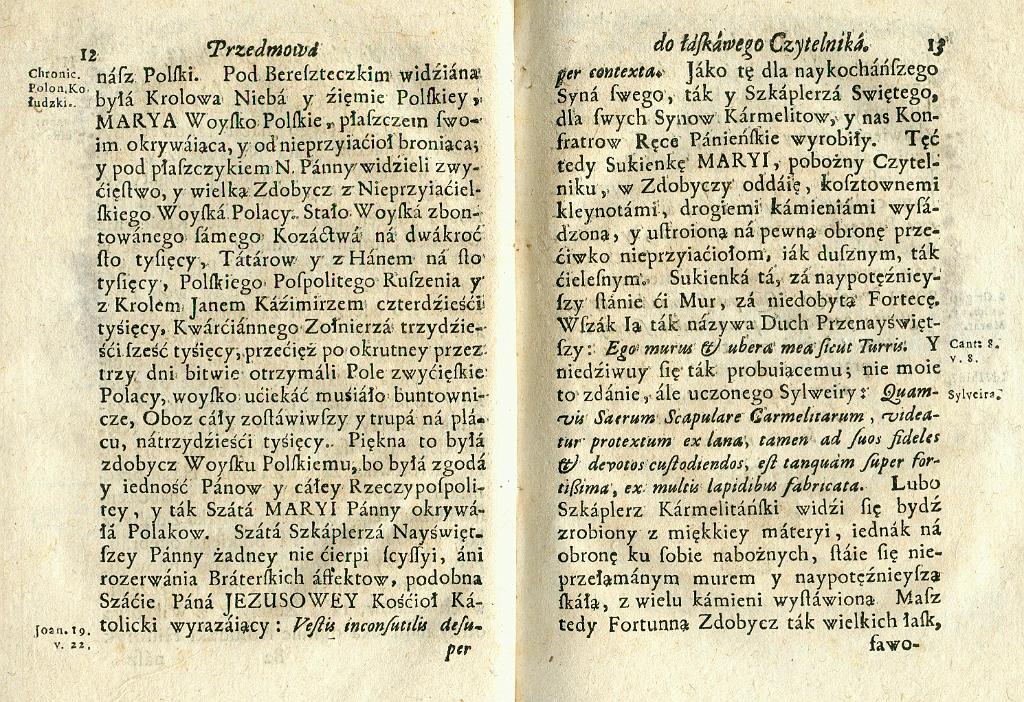 12 Przedmowá
Chronic. Polon. Ko łudzki.
nász Polſki. Pod Bereſzteczkim widźiána
byłá Krolowa Niebá y źięmie Polſkiey,
MARYA Woyſko Polſkie, płaſzczem ſwo-
im okrywáiąca, y od nieprzyiaćioł broniąca;
y pod płaſzczykiem N. Pánny widzieli zwy-
ćięſtwo, y wielką Zdobycz z Nieprzyiaćiel-
ſkiego Woyſká Polacy. Stało Woyſká zbon-
towánego ſámego Kozáctwá ná dwákroć
ſto tyſięcy, Tátárow y z Hánem ná ſto
tyſięcy, Polſkiego Poſpolitego Ruſzenia y
z Krolem Janem Káźimirzem czterdźieśći
tyśięcy, Kwárćiánnego Zołnierzá trzydźie-
śći ſześć tyśięcy, przećięż po okrutney przez
trzy dni bitwie otrzymáli Pole zwyćięſkie
Polacy, woyſko ućiekáć muśiáło buntowni-
cze, Oboz cáły zoſtáwiwſzy y trupá ná plá-
cu, nátrzydźieśći tyśięcy. Piękna to byłá
zdobycz Woyſku Polſkiemu, bo byłá zgodá
y iedność Pánow y cáłey Rzeczypoſpoli-
tey, y ták Szátá MARYI Pánny okrywá-
łá Polakow. Szátá Szkáplerzá Nayświęt-
ſzey Pánny żadney nie ćierpi ſcyſſyi, áni
rozerwánia Bráterſkich áffektow, podobna
Száćie Páná JEZUSOWEY Kośćioł Ká-
tolicki wyrazáiący: Veſtis inconſutilis deſu-
Joan. 19. v. 22.
per
do łáſkáwego Czytelniká. 13
per contexta. Jáko tę dla naykocháńſzego
Syná ſwego, ták y Szkáplerzá Swiętego,
dla ſwych Synow Kármelitow, y nas Kon-
fratrow Ręce Pánieńſkie wyrobiły. Tęć
tedy Sukienkę MARYI, pobożny Czytel-
niku, w Zdobyczy oddáię, koſztownemi
kleynotámi, drogiemi kámieniámi wyſá-
dzoną, y uſtroioną ná pewną obronę prze-
ćiwko nieprzyiaćiołom, iák duſznym, ták
ćieleſnym. Sukienká tá, zá naypotężniey-
ſzy ſtánie ći Mur, zá niedobytą Fortecę.
Wſzák Ią ták názywa Duch Przenayświęt-
ſzy: Ego murus & ubera mea ſicut Turris. Y
Cant: 8. v. 8.
niedźiwuy ſię ták probuiącemu; nie moie
to zdánie, ále uczonego Sylweiry: Quam-
Sylveira.
vis Sacrum Scapulare Carmelitarum, videa-
tur protextum ex lana, tamen ad ſuos fideles
& devotos cuſtodiendos, eſt tanquám ſuper for-
tißima, ex multis lapidibus fabricata. Lubo
Szkáplerz Kármelitáńſki widźi ſię bydź
zrobiony z miękkiey máteryi, iednák ná
obronę ku ſobie nabożnych, ſtáie ſię nie-
przełamánym murem y naypotężnieyſzą
ſkáłą, z wielu kámieni wyſtáwioną Maſz
tedy Fortunną Zdobycz ták wielkich łaſk,
fawo-